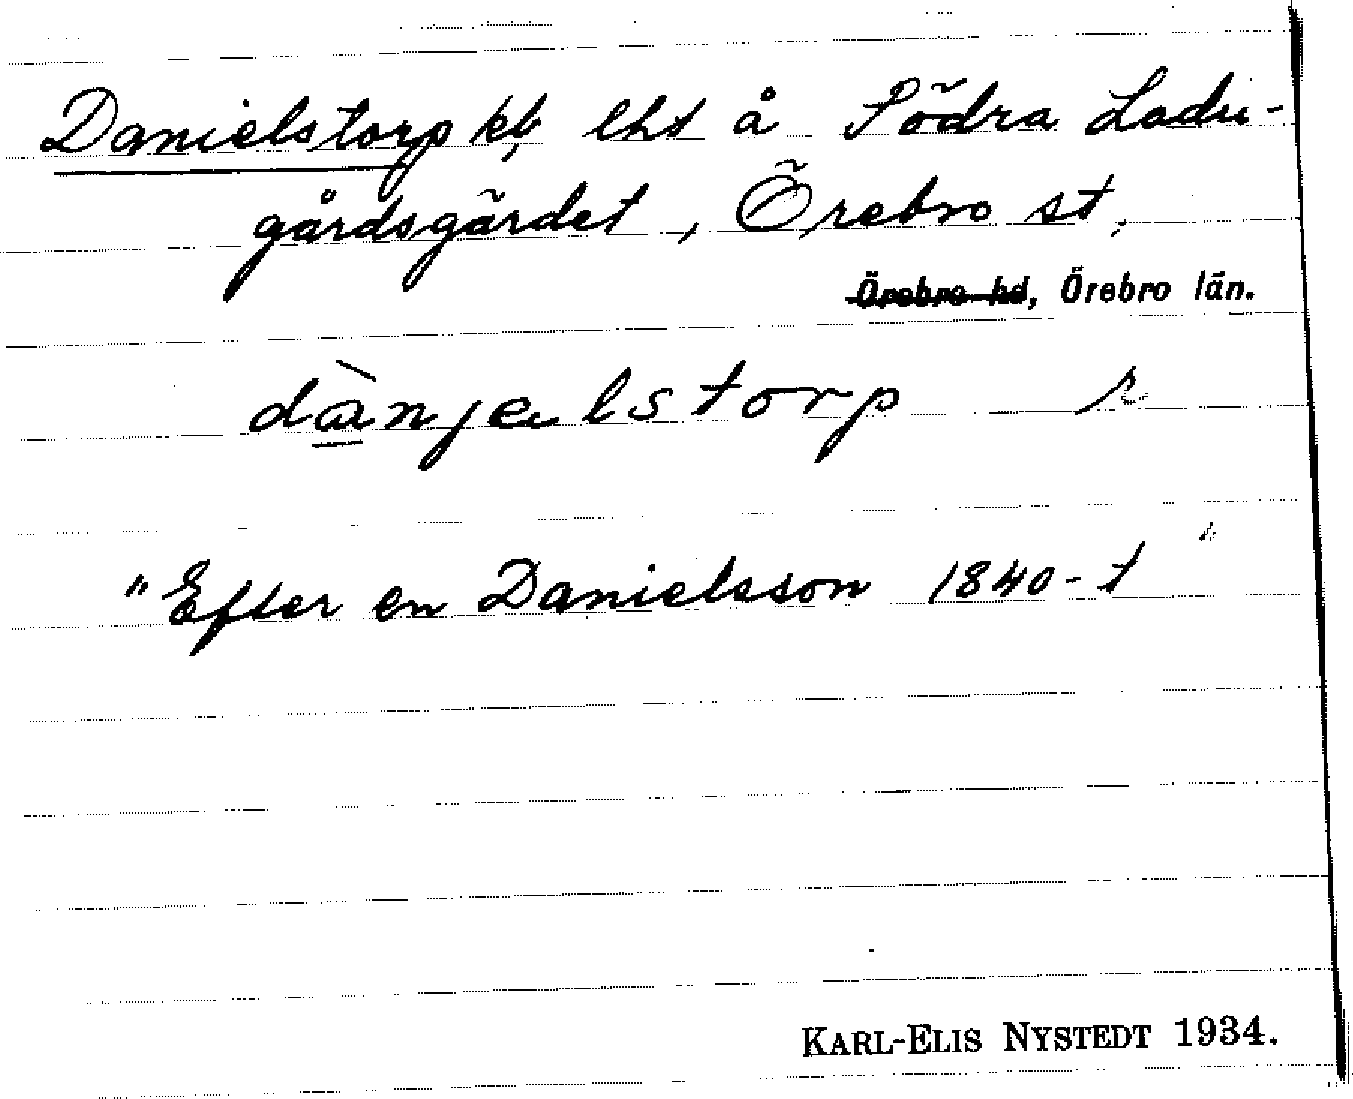 Danielstorp kb, lht å Södra Ladu-
gårdsgärdet, Örebro st,
Örebro hd, Örebro län.
dànjelstorp
"Efter en Danielsson 1840-t"
KARL-ELIS NYSTEDT 1934.